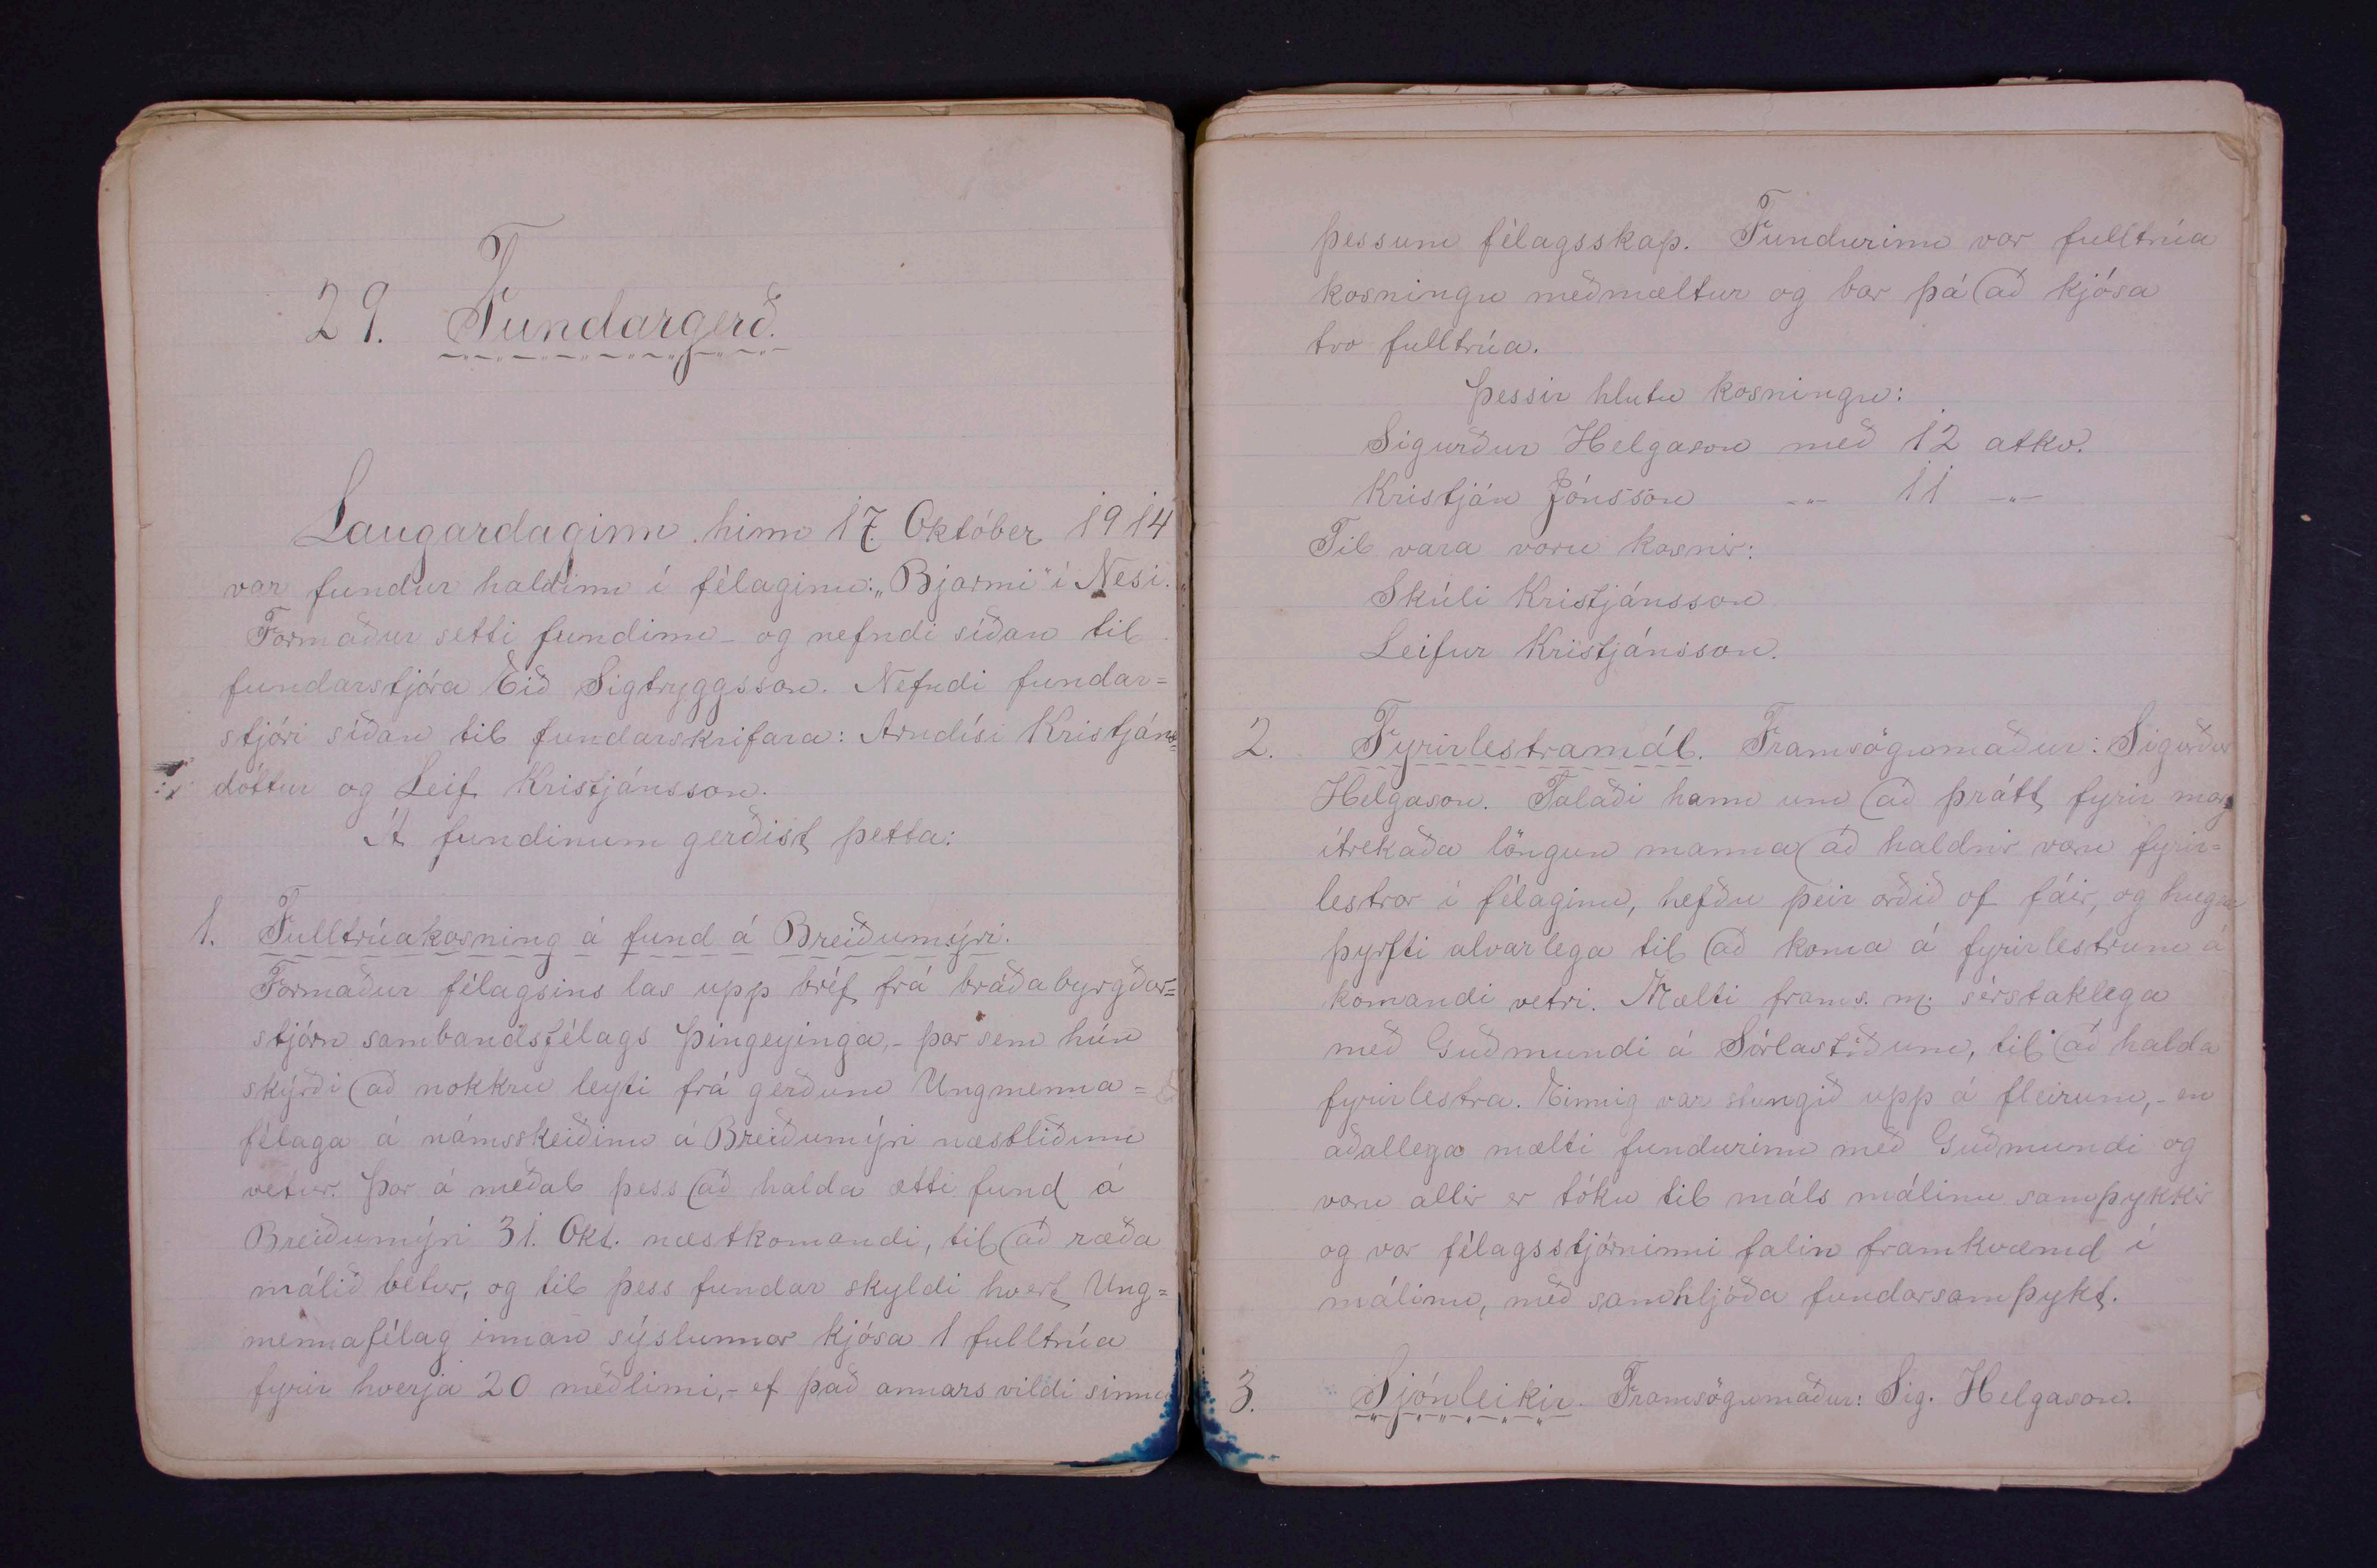 29. Fundargerð.
Laugardaginn hinn 17. Október 1914
var fundur haldinn í félaginu: „Bjarmi" í Nesi.
Formaður setti fundinn - og nefndi síðan til
fundarstjóra Eið Sigtryggsson. Nefndi fundar=
stjóri síðan til fundarskrifara: Arndísi Kristjáns=
dóttur og Leif Kristjánsson.
Á fundinum gerðist þetta:
1. Fulltrúakosning á fund á Breiðumýri.
Formaður félagsins las upp bréf frá bráðabyrgðar=
stjórn sambandsfélags Þingeyinga, - þar sem hún
skýrði að nokkru leyti frá gerðum Ungmenna=
félaga á námsskeiðinu á Breiðumýri næstliðinn
vetur. Þar á meðal þess að halda ætti fund á
Breiðumýri 31. Okt. næstkomandi, til að ræða
málið betur, og til þess fundar skyldi hvert Ung=
mennafélag innan sýslunnar kjósa 1 fulltrúa
fyrir hverja 20 meðlimi, - ef það annars vildi sinna
þessum félagsskap. Fundurinn var fulltrúa
kosningu meðmæltur og bar þá að kjósa
tvo fulltrúa.
Þessir hlutu kosningu:
Sigurður Helgason með 12 atkv.
Kristján Jónsson -„- 11 -„-
Til vara voru kosnir:
Skúli Kristjánsson
Leifur Kristjánsson.
2. Fyrirlestramál. Framsögumaður: Sigurður
Helgason. Talaði hann um að þrátt fyrir marg
ítrekaða löngun manna að haldnir væru fyrir=
lestrar í félaginu, hefðu þeir orðið of fáir, og hugsa
þyrfti alvarlega til að koma á fyrirlestrum á
komandi vetri. Mælti frams. m. sérstaklega
með Guðmundi á Sörlastöðum, til að halda
fyrirlestra. Einnig var stungið upp á fleirum, - en
aðallega mælti fundurinn með Guðmundi og
voru allir er tóku til máls málinu samþykkir
og var félagsstjórninni falin framkvæmd í
málinu, með samhljóða fundarsamþykt.
3. Sjónleikir. Framsögumaður: Sig. Helgason.